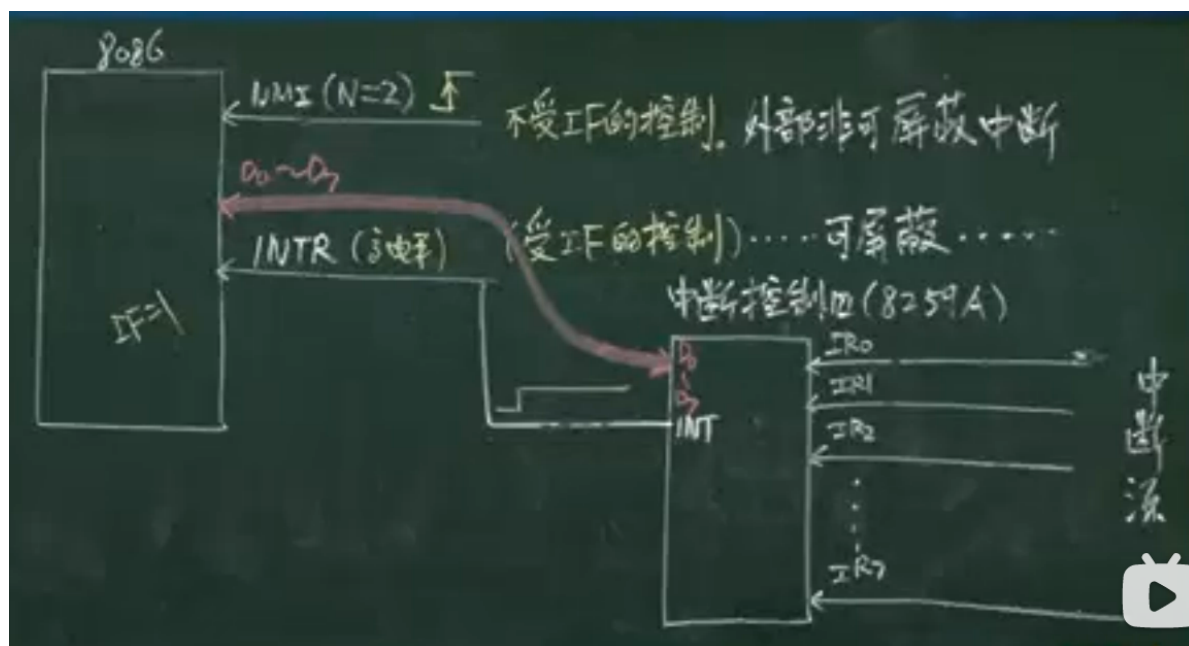 8086
NMI (N=2)
不受IF的控制。外部非可屏蔽中断
D0~D7
INTR (高电平)
(受IF的控制)……可屏蔽……
IF=1
中断控制口(8259A)
D0
~
D7
INT
IR0
IR1
IR2
IR7
中断源